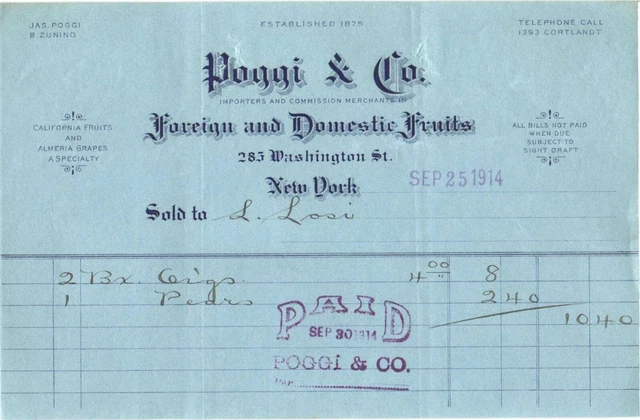 JAS. POGGI
B. ZUNINO
ESTABLISHED 1875
TELEPHONE CALL
1393 CORTLANDT
Poggi & Co.
IMPORTERS AND COMMISSION MERCHANTS IN
Foreign and Domestic Fruits
CALIFORNIA FRUITS
AND
ALMERIA GRAPES
A SPECIALTY
ALL BILLS NOT PAID
WHEN DUE
SUBJECT TO
SIGHT DRAFT
285 Washington St.
New York
SEP 25 1914
Sold to L. Losi
2 Bx. 4 00 8
1 Pears 2 40
10 40
PAID
SEP 30 1914
POGGI & CO.